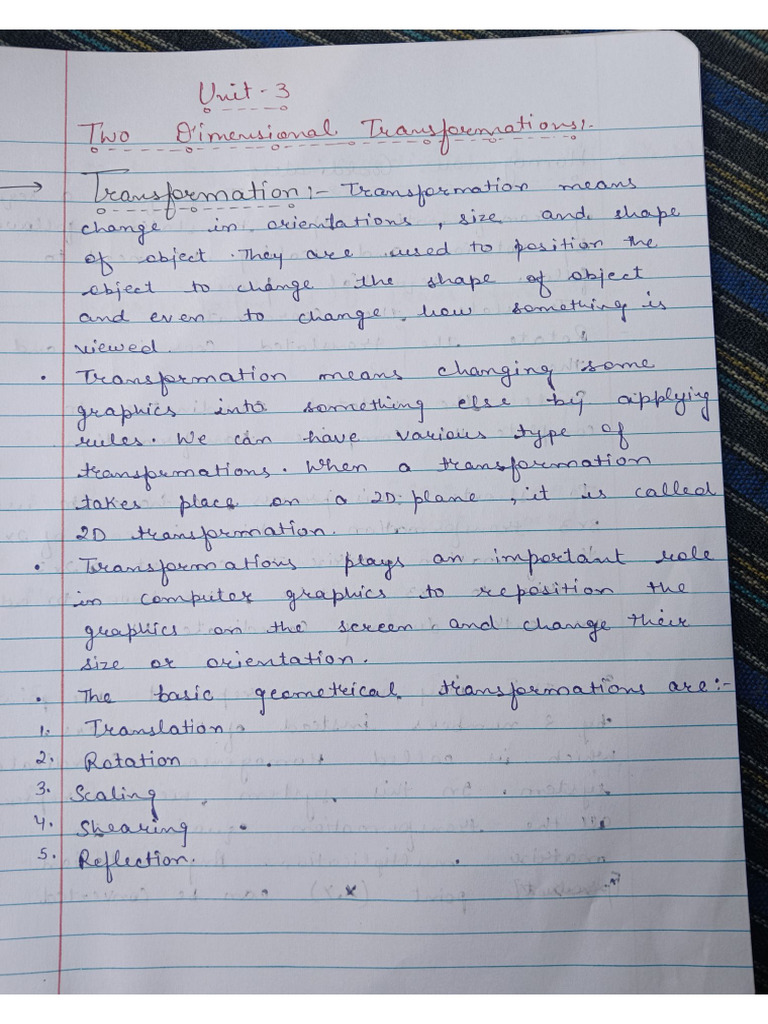 Unit - 3
Two Dimensional Transformations:-
Transformation:- Transformation means
change in orientations, size and shape
of object. They are used to position the
object to change the shape of object
and even to change how something is
viewed.
• Transformation means changing some
graphics into something else by applying
rules. We can have various type of
transformations. When a transformation
takes place on a 2D plane, it is called
2D transformation.
• Transformations plays an important role
in computer graphics to reposition the
graphics on the screen and change their
size or orientation.
• The basic geometrical transformations are:-
1. Translation
2. Rotation
3. Scaling
4. Shearing
5. Reflection.